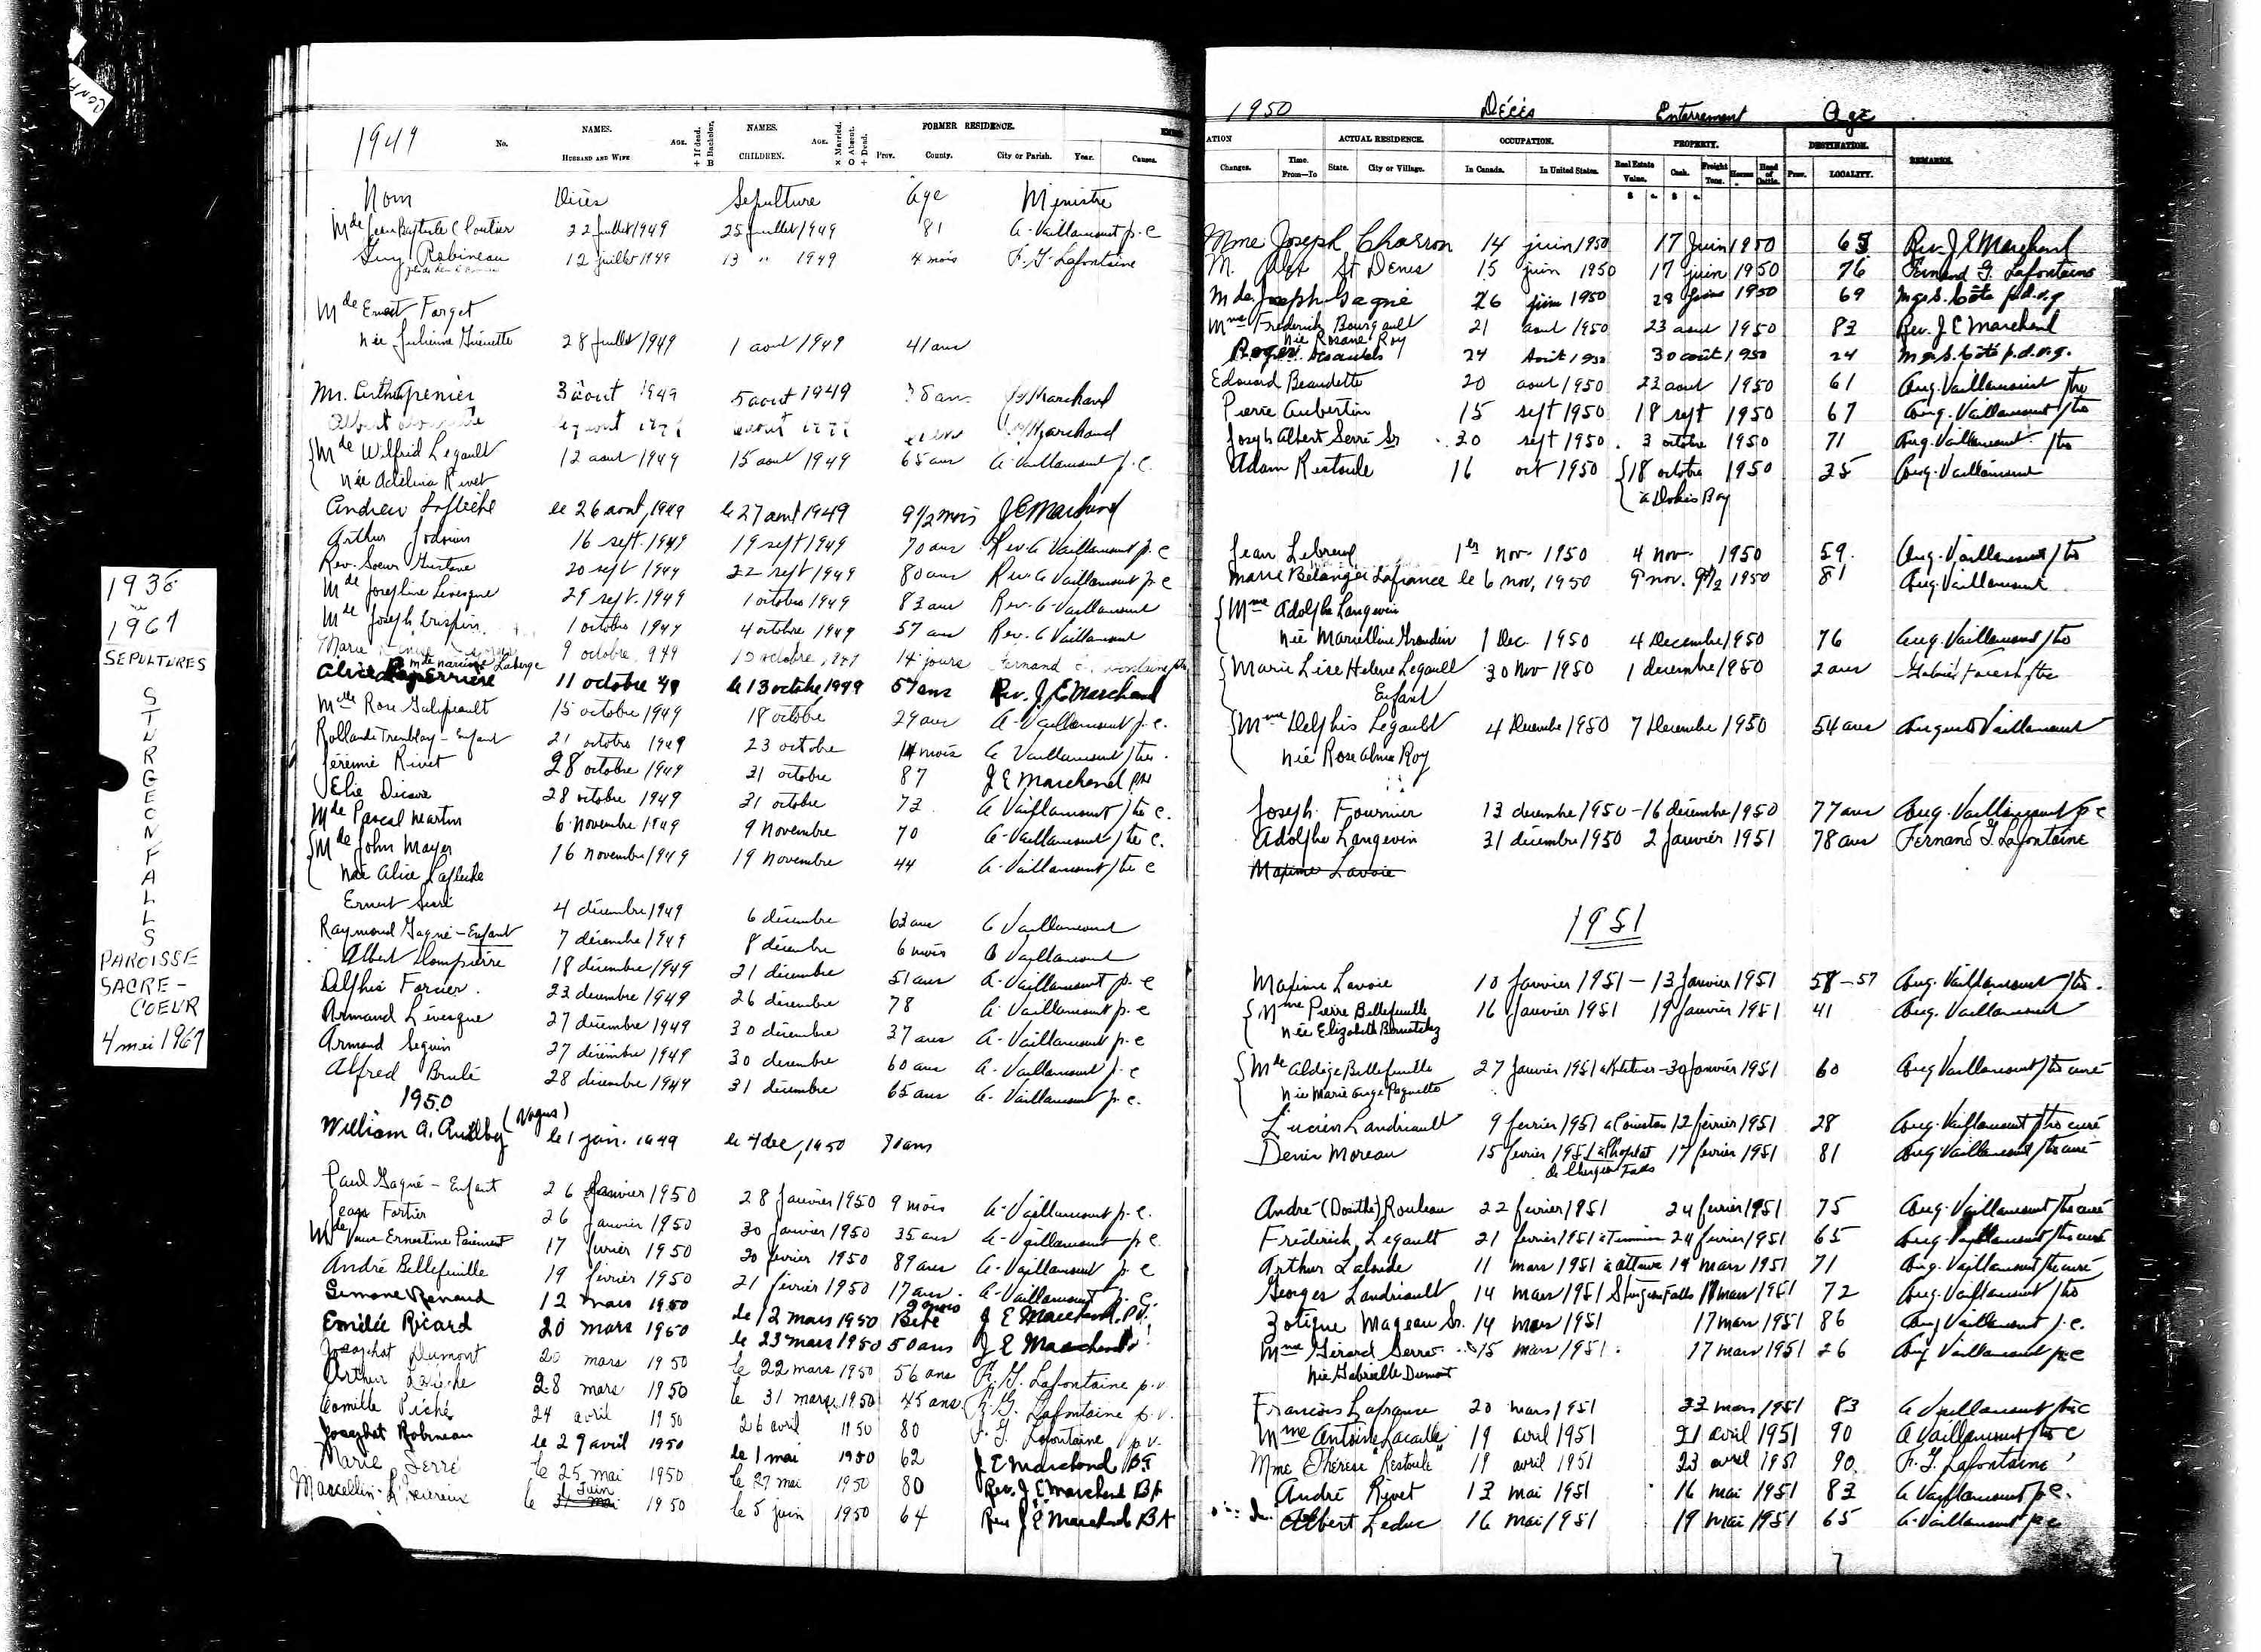 1936
au
1967
SEPULTURES
STURGEON FALLS
PAROISSE
SACRE-
COEUR
4 mai 1967
1949
No. NAMES. HUSBAND AND WIFE AGE. + If dead. B Bachelor. NAMES. CHILDREN. AGE. × Married. O Absent. + Dead. FORMER RESIDENCE. Prov. County. City or Parish. Year. Causes.
Nom Décès Sépulture Age Ministre
Mde Jean Baptiste Cloutier 22 juillet 1949 25 juillet 1949 81 A. Vaillancourt p.c
Guy Robineau 12 juillet 1949 13 " 1949 4 mois F. G. Lafontaine
Mde Ernest Forget
née Julienne Guenette 28 juillet 1949 1 aout 1949 41 ans
Mr. Arthur Grenier 3 aout 1949 5 aout 1949 38 ans Marchand
Albert Marchand
Mde Wilfrid Legault 12 aout 1949 15 aout 1949 65 ans A. Vaillancourt p.c.
née Adélina Rivet
Andrew Laflèche le 26 aout, 1949 le 27 aout 1949 9 1/2 mois J E Marchand
Arthur Jodouin 16 sept. 1949 19 sept 1949 70 ans Rev. A Vaillancourt p.c
Rev. Soeur Gustave 20 sept 1949 22 sept 1949 80 ans Rev. A Vaillancourt p.c
Mde Josephine Levesque 29 sept. 1949 1 octobre 1949 82 ans Rev. A. Vaillancourt
Mde Joseph Crispin 1 octobre 1949 4 octobre 1949 57 ans Rev. A Vaillancourt
Marie 9 octobre 949 10 octobre 14 jours Fernand G. Lafontaine
Mme narcisse Laberge
Alice Laperrière 11 octobre 49 le 13 octobre, 1949 57 ans Rev. J. E. Marchand
Mlle Rose Galipeault 15 octobre 1949 18 octobre 29 ans A. Vaillancourt p.c.
Rollande Tremblay - Enfant 21 octobre 1949 23 octobre 14 mois A Vaillancourt ptre.
Jérémie Rivet 28 octobre 1949 31 octobre 87 J E Marchand
Elie Dicaire 28 octobre 1949 31 octobre 73 A Vaillancourt ptre c.
Mde Pascal Martin 6 Novembre 1949 9 Novembre 70 A. Vaillancourt ptre c.
Mde John Mayer 16 Novembre 1949 19 Novembre 44 A. Vaillancourt ptre c
née Alice Laflèche
Ernest Serré 4 décembre 1949 6 décembre 63 ans A Vaillancourt
Raymond Gagné - Enfant 7 décembre 1949 8 décembre 6 mois A Vaillancourt
Albert Dompierre 18 décembre 1949 21 décembre 51 ans A. Vaillancourt p.c
Delphis Forcier. 23 décembre 1949 26 décembre 78 A. Vaillancourt p.c
Armand Lévesque 27 décembre 1949 30 décembre 37 ans A. Vaillancourt p.c
Armand Seguin 27 décembre 1949 30 décembre 60 ans A. Vaillancourt p.c
Alfred Brulé 28 décembre 1949 31 décembre 65 ans A. Vaillancourt p.c.
1950
William A. (Nogus) le 1 jan. 1949 le 4 dec, 1950 71 ans
Paul Gagné - Enfant 26 Janvier 1950 28 Janvier 1950 9 mois A. Vaillancourt p.c.
Jean Fortier 26 Janvier 1950 30 Janvier 1950 35 ans A. Vaillancourt p.c.
Mde Veuve Ernestine Paiement 17 fevrier 1950 20 fevrier 1950 89 ans A. Vaillancourt p.c
André Bellefeuille 19 février 1950 21 février 1950 17 ans. A. Vaillancourt p.c.
Simone Renaud 12 mars 1950 le 12 mars 1950 Bébé 9 mois J E Marchand, p.v.
Emilie Ricard 20 mars 1950 le 23 mars 1950 50 ans J E Marchand
Josaphat Dumont 20 mars 1950 le 22 mars 1950 56 ans F. G. Lafontaine p.v.
Arthur 28 mars 1950 le 31 mars, 1950 45 ans F. G. Lafontaine p.v.
Camille Piché 24 avril 1950 26 avril 1950 80 F. G. Lafontaine p.v.
Josephat Robineau le 29 avril 1950 le 1 mai 1950 62 J E Marchand
Marie Serré le 25 mai 1950 le 27 mai 1950 80 Rev. J. E. Marchand
Marcellin le Juin 1950 le 5 juin 1950 64 Rev J E Marchand
1950 Décès Enterrement Age
ATION Changes. Time. From—To ACTUAL RESIDENCE. State. City or Village. OCCUPATION. In Canada. In United States. PROPERTY. Real Estate Value. Cash. Freight Tons. Horses Head of Cattle. DESTINATION. Prov. LOCALITY. REMARKS.
Mme Joseph Charron 14 juin 1950 17 Juin 1950 65 Rev. J E Marchand
M. Alex St Denis 15 juin 1950 17 juin 1950 76 Fernand G. Lafontaine
Mde Joseph Gagné 26 juin 1950 28 juin 1950 69 Mgr S. Côté p.d.v.g
Mme Frederick Bourgault 21 aout 1950 23 aout 1950 83 Rev. J E Marchand
née Rosane Roy
Roger 24 Août 1950 30 août 1950 24 Mgr S. Côté p.d.v.g.
Edouard Beaudette 20 aout 1950 22 aout 1950 61 Aug. Vaillancourt ptre
Pierre Aubertin 15 sept 1950 18 sept 1950 67 Aug. Vaillancourt ptre
Joseph Albert Serré Sr 30 sept 1950. 3 octobre 1950 71 Aug. Vaillancourt ptre
Adam Restoule 16 oct 1950 18 octobre 1950 35 Aug. Vaillancourt
à Dokis Bay
Jean Lebreux 1er Nov. 1950 4 nov. 1950 59. Aug. Vaillancourt ptre
Marie Bélanger Lafrance le 6 nov, 1950 9 nov. 9h/2 1950 81 Aug. Vaillancourt
Mme Adolphe Langevin
née Marcelline Grondin 1 Dec. 1950 4 Decembre 1950 76 Aug. Vaillancourt ptre
Marie Lise Helene Legault 30 Nov 1950 1 decembre 1950 2 ans Gabriel Forest ptre
Enfant
Mme Delphis Legault 4 Decembre 1950 7 Decembre 1950 54 ans Auguste Vaillancourt
née Rose Alma Roy
Joseph Fournier 13 decembre 1950 - 16 décembre 1950 77 ans Aug. Vaillancourt p c
Adolphe Langevin 31 décembre 1950 2 janvier 1951 78 ans Fernand G. Lafontaine
Maxime Lavoie
1951
Maxime Lavoie 10 Janvier 1951 - 13 Janvier 1951 58 - 57 Aug. Vaillancourt ptre.
Mme Pierre Bellefeuille 16 Janvier 1951 19 Janvier 1951 41 Aug. Vaillancourt
née Elizabeth
Mde Aldège Bellefeuille 27 Janvier 1951 - 30 Janvier 1951 60 Aug Vaillancourt ptre curé
née Marie Ange Paquette
Lucien Landriault 9 fevrier 1951 à Coniston 12 fevrier 1951 28 Aug. Vaillancourt ptre curé
Denis Moreau 15 fevrier 1951 à l'hopital 17 fevrier 1951 81 Aug Vaillancourt ptre curé
de Sturgeon Falls
André (Dosithé) Rouleau 22 fevrier 1951 24 fevrier 1951 75 Aug. Vaillancourt ptre curé
Fréderick Legault 21 fevrier 1951 à Timmins 24 fevrier 1951 65 Aug. Vaillancourt ptre curé
Arthur Lalande 11 mars 1951 à Ottawa 14 mars 1951 71 Aug. Vaillancourt ptre curé
Georges Landriault 14 mars 1951 Sturgeon Falls 17 mars 1951 72 Aug. Vaillancourt ptre
Zotique Mageau Sr. 14 mars 1951 17 mars 1951 86 Aug Vaillancourt p.c.
Mme Gérard Serré 15 mars 1951. 17 mars 1951 26 Aug Vaillancourt p c
née Gabrielle Dumont
Francois Lafrance 20 mars 1951 22 mars 1951 83 A Vaillancourt ptre c
Mme Antoine Lacaille 19 avril 1951 21 avril 1951 90 A Vaillancourt ptre c
Mme Thérèse Restoule 19 avril 1951 23 avril 1951 90. F. G. Lafontaine
André Rivet 13 mai 1951 16 mai 1951 83 A Vaillancourt p.c.
Albert Leduc 16 Mai 1951 19 Mai 1951 65 A. Vaillancourt p c